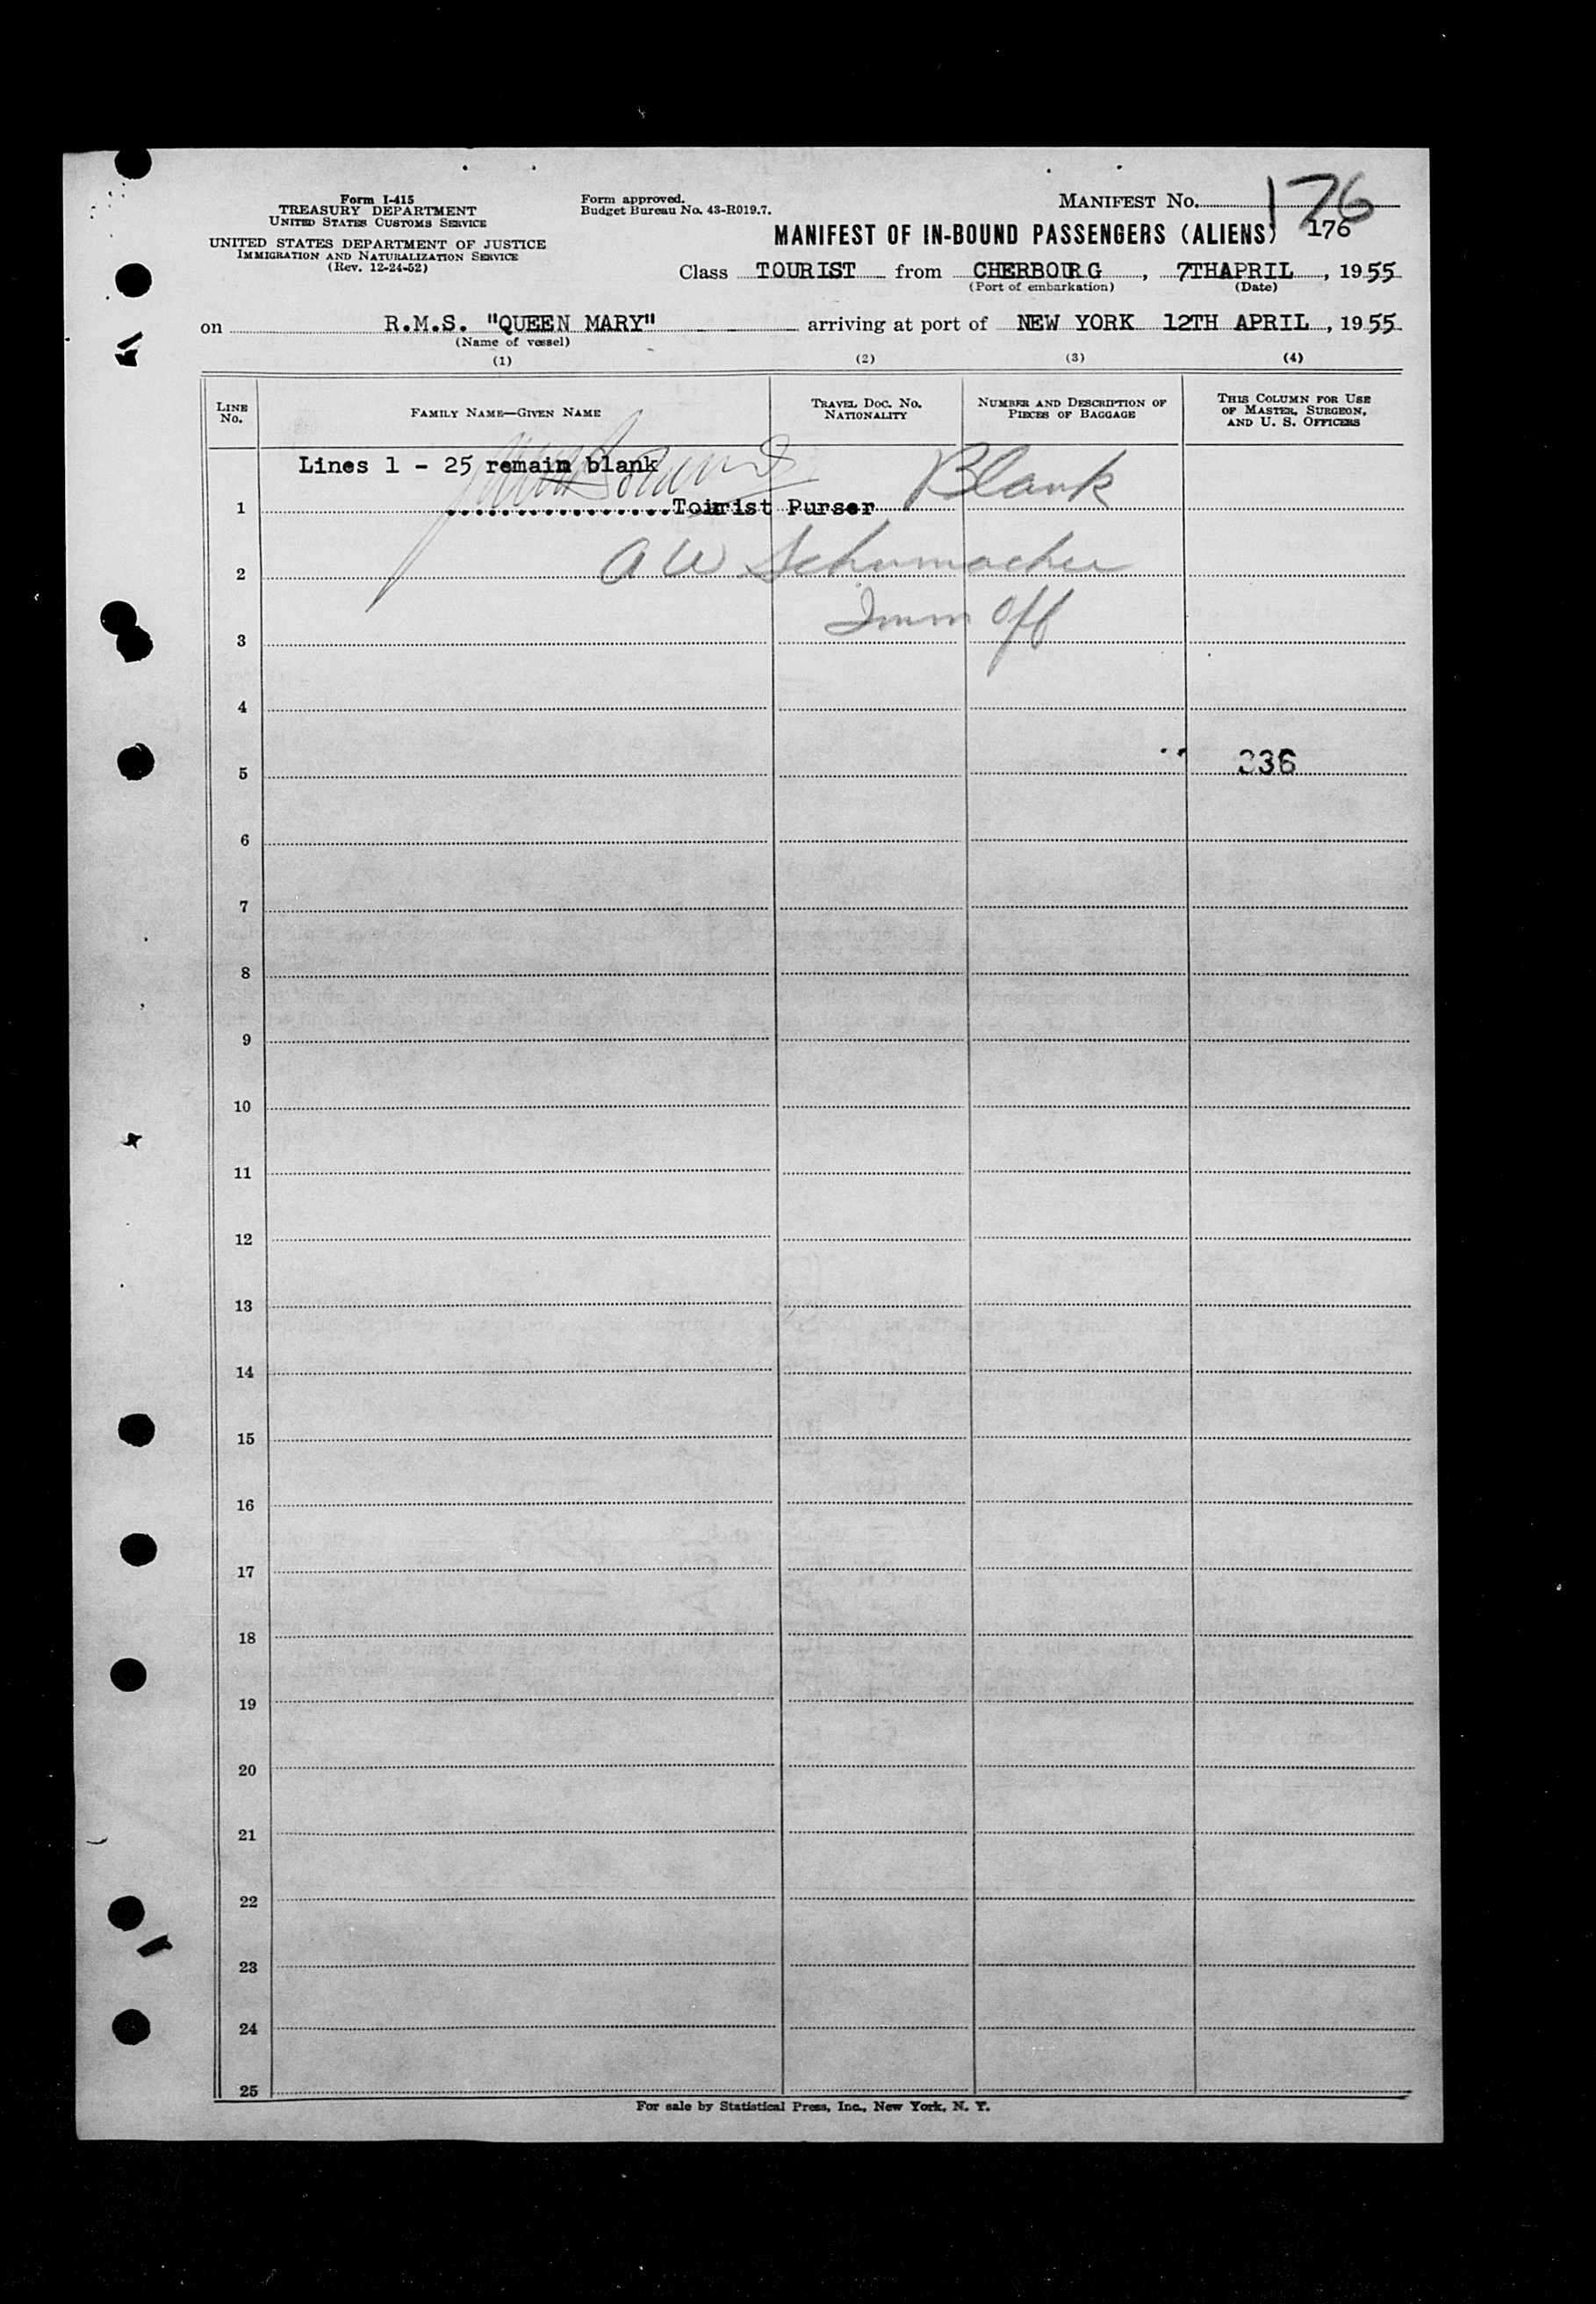 Form I-415
TREASURY DEPARTMENT
UNITED STATES CUSTOMS SERVICE
UNITED STATES DEPARTMENT OF JUSTICE
IMMIGRATION AND NATURALIZATION SERVICE
(Rev. 12-24-52)
Form approved.
Budget Bureau No. 43-R019.7.
MANIFEST No. 176
MANIFEST OF IN-BOUND PASSENGERS (ALIENS) 176
Class TOURIST from CHERBOURG, 7TH APRIL, 1955
(Port of embarkation) (Date)
on R.M.S. "QUEEN MARY" arriving at port of NEW YORK 12TH APRIL, 1955
(Name of vessel)
(1) (2) (3) (4)
LINE No.
FAMILY NAME—GIVEN NAME
TRAVEL DOC. NO. NATIONALITY
NUMBER AND DESCRIPTION OF PIECES OF BAGGAGE
THIS COLUMN FOR USE OF MASTER, SURGEON, AND U. S. OFFICERS
Lines 1 - 25 remain blank
1 ................Tourist Purser Blank
2 A W Schumacher
3 Imm Off
4
5 336
6
7
8
9
10
11
12
13
14
15
16
17
18
19
20
21
22
23
24
25
For sale by Statistical Press, Inc., New York, N. Y.